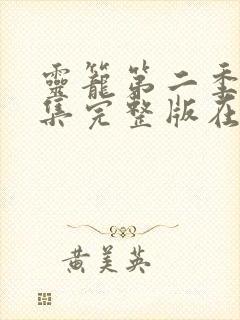 靈籠第二季
集完整版在
黄美英